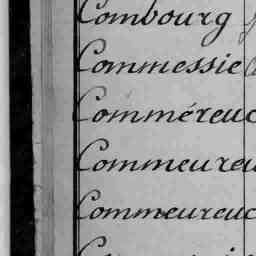 Combourg
Commessie
Comméreuc
Commeureu
Commeureuc